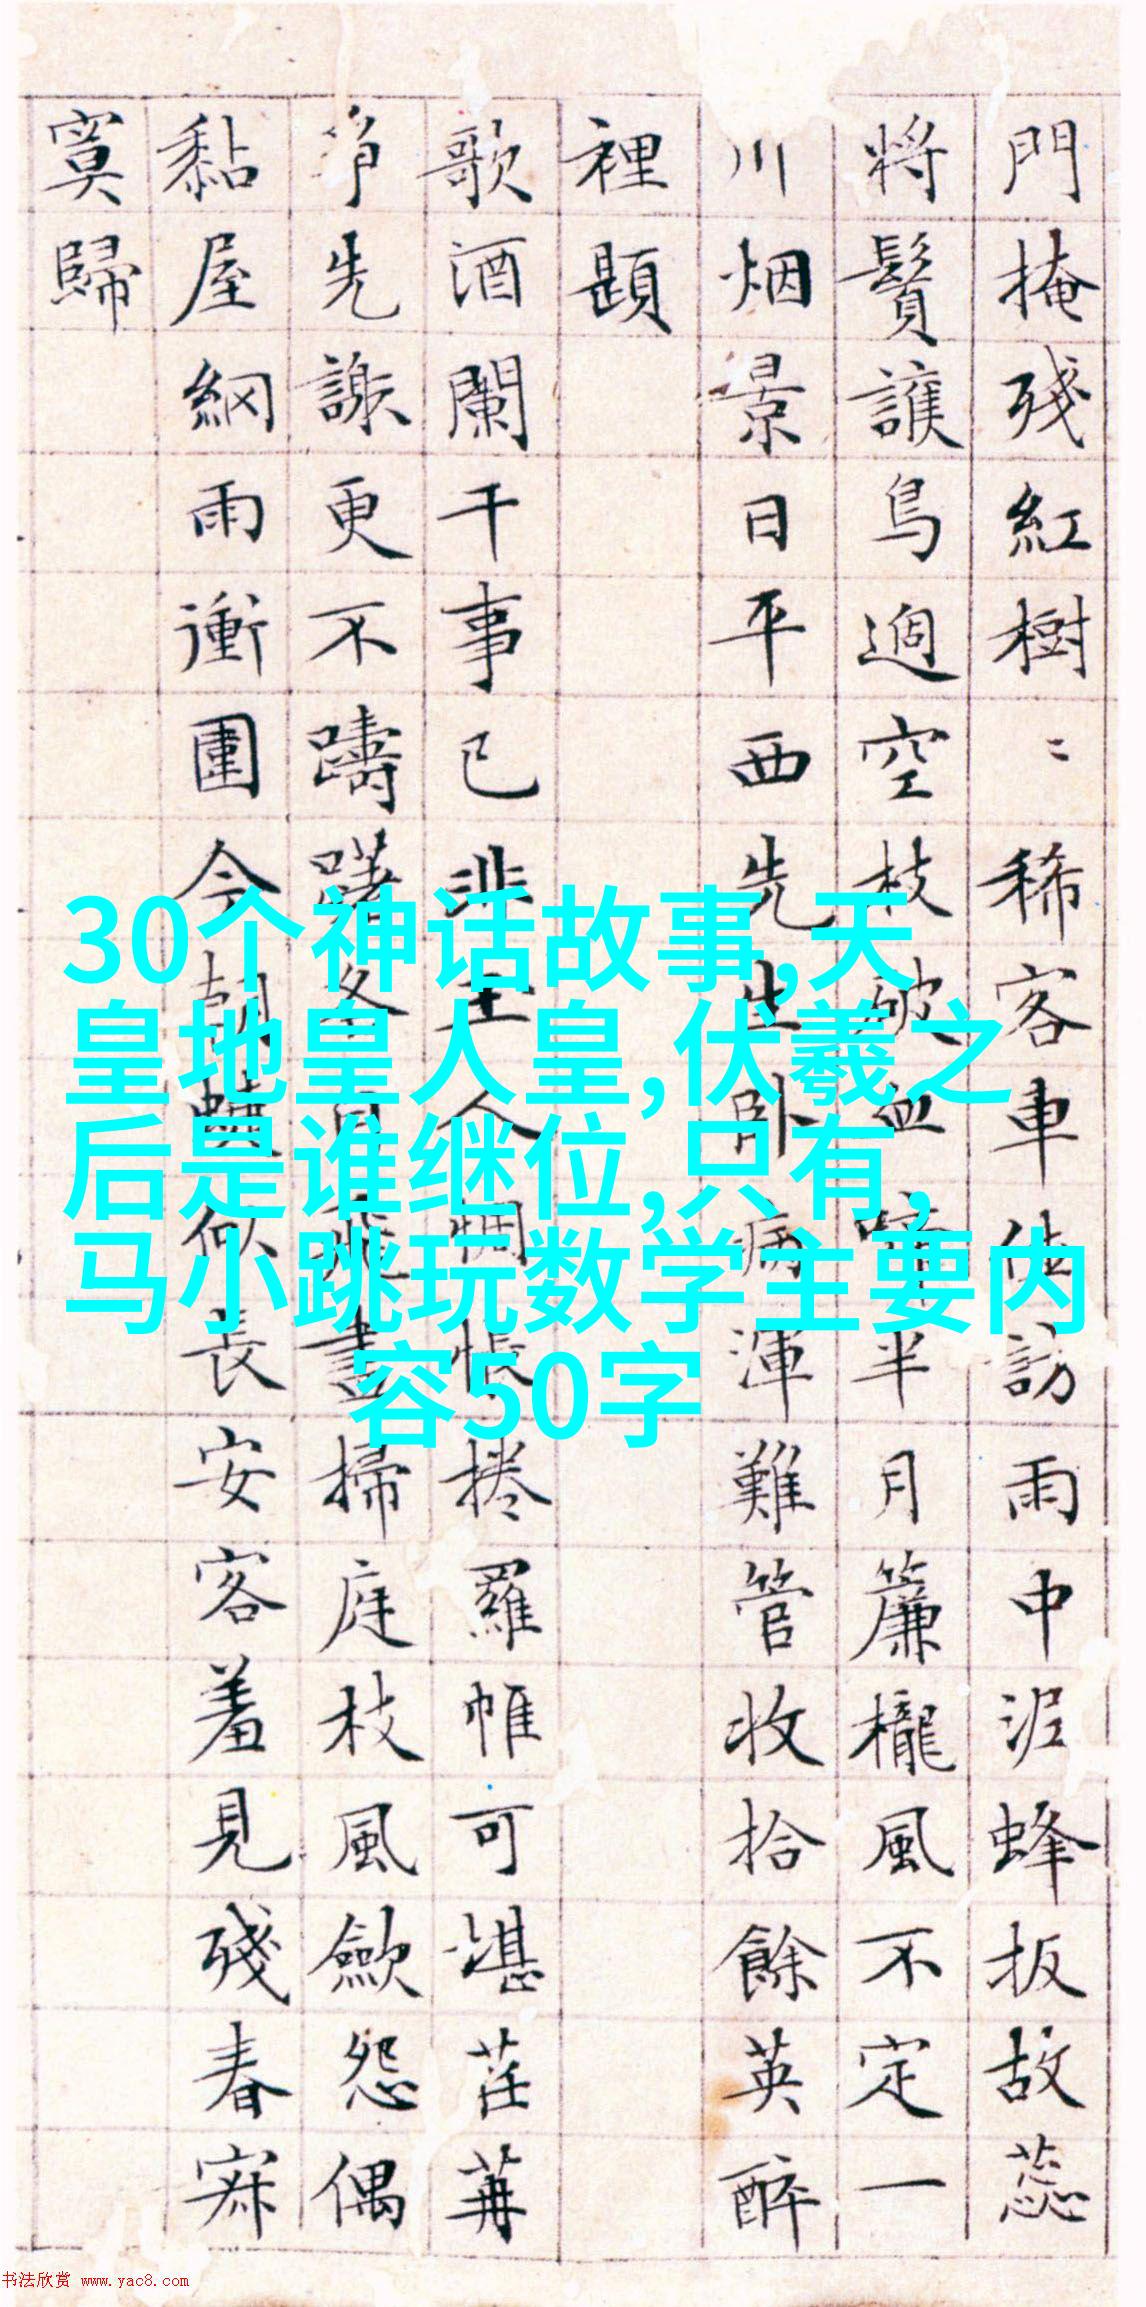 門掩殘紅樹〻稀客車
訪雨中泥蜂扳故蕊
將鬢護鳥過空枝
半月簾櫳風不定一
川烟景日平西先
渾難管收拾餘英醉
裡題
歌酒闌干事已非
捲羅帷可堪茌苒
先謝更不躊躇
掃庭枝風歛怨偶
黏屋網雨衝圍今
長安客羞見殘春寂
寞歸
30个神话故事,天
皇地皇人皇,伏羲之
后是谁继位,只有,
马小跳玩数学主要内
容50字
书法欣赏 www.yac8.com